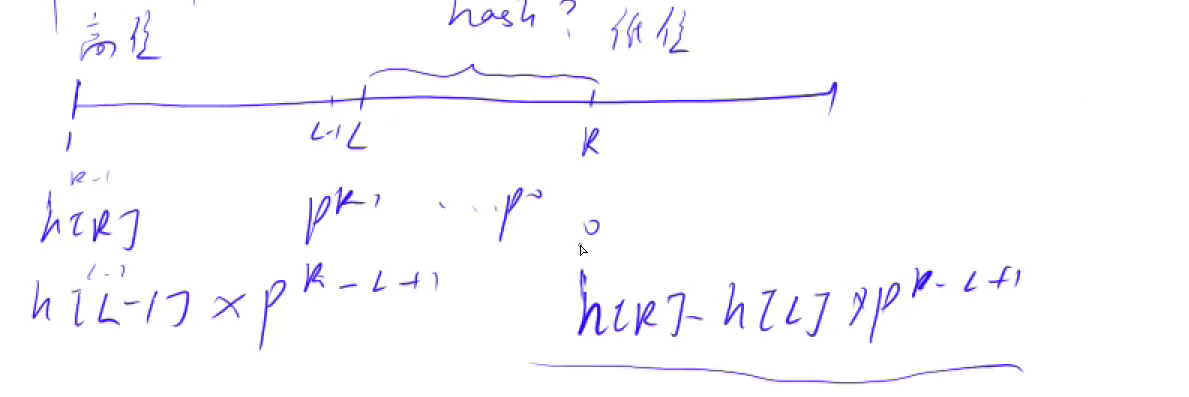 高位 hash? 低位
L-1 L
1 R
R-1
h[R] p^{R-1} ...p^0 0
h[L-1] × p^{R-L+1} h[R]-h[L] × p^{R-L+1}